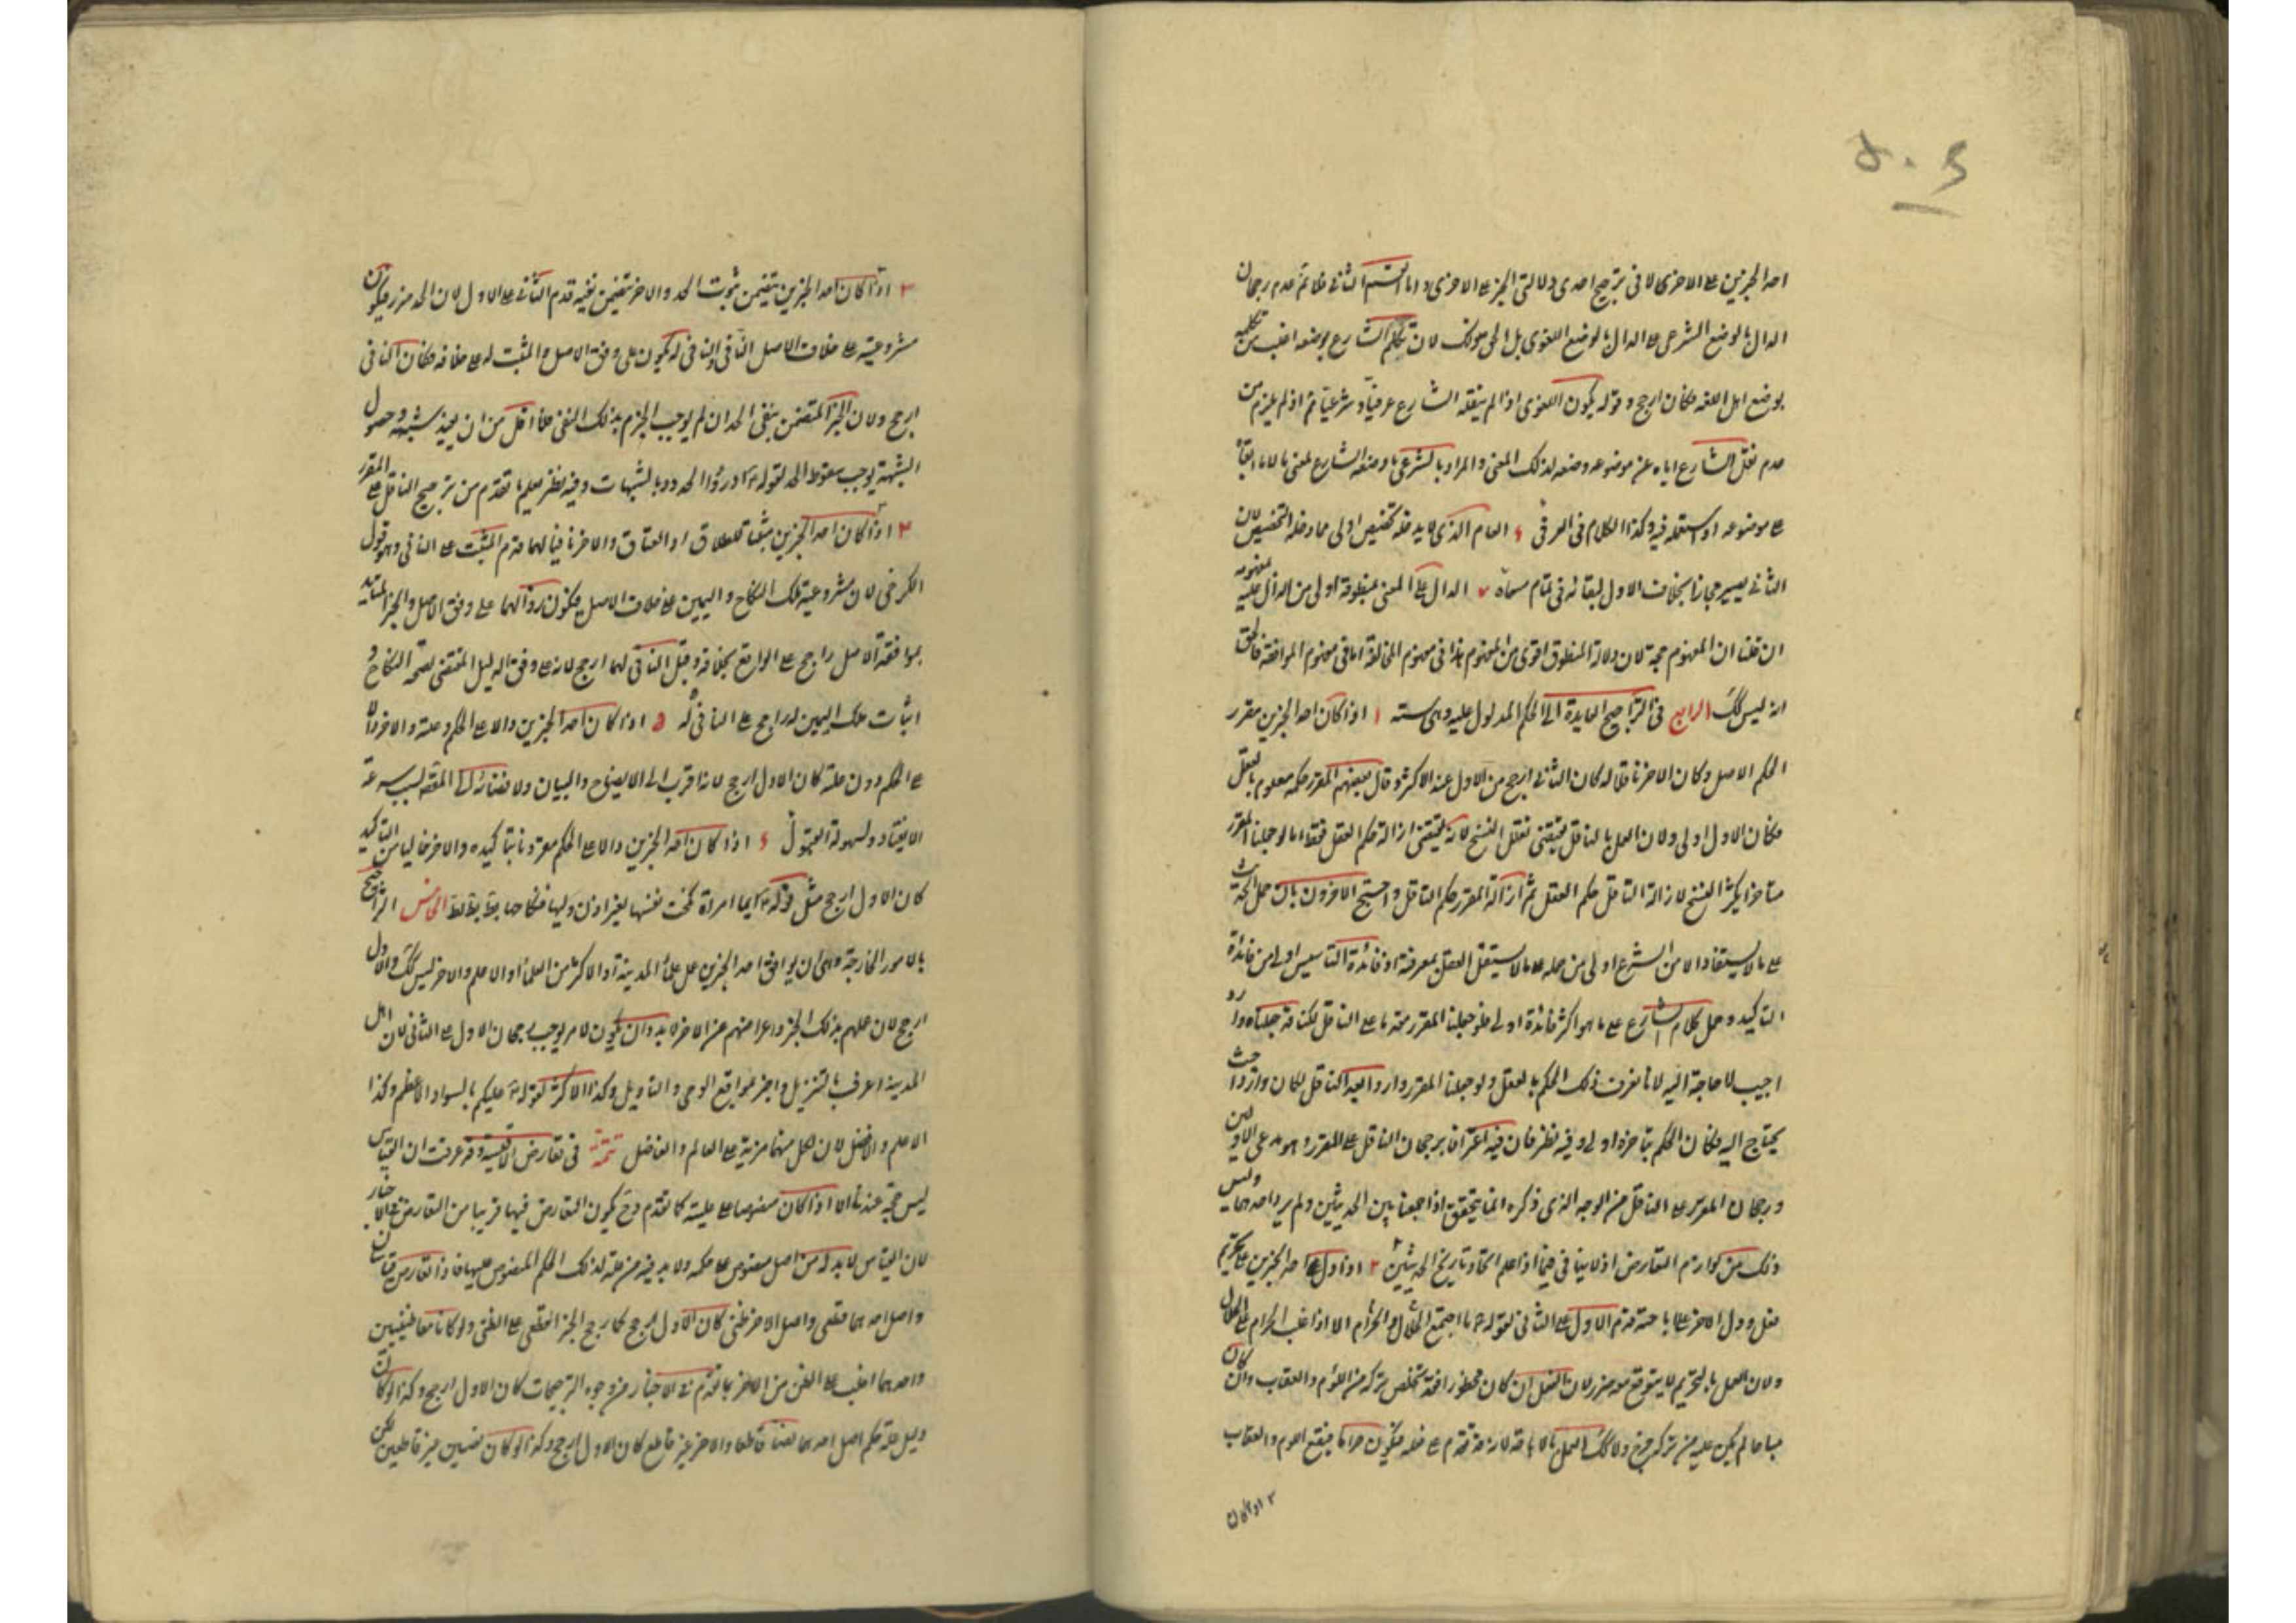 ٥٠٤
احد الخبرين على الاخرى لا فى ترجيح احدى دلالتى الخبر على الاخرى واما القسم الثانى فلا ثم عدم رجحان
الدال بالوضع الشرعى على الدال بالوضع اللغوى بل الحق ذلك لان تكلم الشارع بوضعه اغلب من تكلمه
بوضع اهل اللغه فكان ارجح وقوله يكون اللغوى اذا لم ينقله الشارع عرفيا وشرعيا ثم اذ لم يلزم من
عدم نقل الشارع اياه عن موضوعه وضعه لذلك المعنى والمراد بالشرعى ما وضعه الشارع لمعنى
على موضوعه او استعمله فيه وكذا الكلام فى العرفى ٤ العام الذى لم يدخله تخصيص اولى مما دخله التخصيص لان
الثانى يصير مجازا بخلاف الاول لبقائه فى تمام مسماه ٧ الدال على المعنى بمنطوقه اولى من الدال عليه بمفهومه
ان قلنا ان المفهوم حجة لان دلالة المنطوق اقوى من المفهوم هذا فى مفهوم المخالفة اما فى مفهوم الموافقة فالحق
انه ليس كك الرابع فى التراجيح العايدة الى الحكم المدلول عليه وهى ستة ١ اذا كان احد الخبرين مقرر
الحكم الاصل وكان الاخر ناقلا له كان الثانى ارجح من الاول عند الاكثر وقال بعضهم المقرر حكمه معلوم بالعقل
فكان الاول اولى ولان العمل بالناقل يقتضى تقليل النسخ لانه يقتضى ازالة حكم العقل فقط اما لو جعلنا المقرر
متاخرا يكثر النسخ لازالة الناقل حكم العقل ثم ازالة المقرر حكم الناقل واحتج الاخرون بان حمل الحديث
على ما لا يستفاد الا من الشرع اولى من حمله على ما لا يستقل العقل بمعرفته اذ فائدة التاسيس اولى من فائدة
التاكيد وحمل كلام الشارع على ما هو اكثر فائدة اولى فلو جعلنا المقرر مقدما على الناقل لكنا قد جعلناه واردا
اجيب لا حاجة اليه لانا نعرف ذلك الحكم بالعقل ولو جعلنا المقرر واردا بعد الناقل لكان واردا حيث
يحتاج اليه فكان الحكم بتاخره اولى وفيه نظر فان فيه اعترافا برجحان الناقل على المقرر وهو مدعى الاولين
ورجحان المقرر على الناقل من الوجه الذى ذكره انما يتحقق اذا جمعنا بين الحديثين ولم يرد احدهما وليس
ذلك من لوازم التعارض اذ لا ينافى فيما اذا علم اتحاد تاريخ الحديثين ٢ اذا دل احد الخبرين على تحريم
فعل ودل الاخر على اباحته قدم الاول على الثانى لقوله ما اجتمع الحلال والحرام الا اذا غلب الحرام على الحلال
ولان العمل بالتحريم لا يتوقع معه ضرر لان الفعل ان كان محظورا فقد تخلص بتركه من اللوم والعقاب وان كان
مباحا لم يكن عليه من تركه حرج ولا كك العمل بالاباحة لانه قد تقدم على فعله فيكون حراما فيقع اللوم والعقاب
٣ اذا كان
٣ اذا كان احد الخبرين يتضمن ثبوت الحد والاخر يتضمن نفيه قدم الثانى على الاول لان الحد ضرر فيكون
مشروعيته على خلاف الاصل والنافى له يكون على وفق الاصل والمثبت له على خلافه فكان النافى
ارجح ولان الخبر المتضمن بنفى الحد ان لم يوجب الجزم بذلك النفى فلا اقل من ان يفيد شبهة وحصول
الشبهة يوجب سقوط الحد لقوله ادرؤا الحدود بالشبهات وفيه نظر يعلم بما تقدم من ترجيح الناقل على المقرر
٤ اذا كان احد الخبرين مثبتا للطلاق او العتاق والاخر نافيا لهما قدم المثبت على النافى وهو قول
الكرخى لان مشروعية ملك النكاح و اليمين على خلاف الاصل فيكون زوالهما على وفق الاصل والخبر المتايد
بموافقة الاصل راجح على الواقع بخلافه وقيل النافى لهما ارجح لانه على وفق الدليل المقتضى لصحة النكاح و
اثبات ملك اليمين له راجح على النافى له ٥ اذا كان احد الخبرين دالا على الحكم وعلته والاخر دالا
على الحكم دون علته كان الاول ارجح لانه اقرب الى الايضاح والبيان ولافضائه الى المقصد بسبب سرعة
الانقياد ولسهولة القبول ٦ اذا كان احد الخبرين دالا على الحكم مقرونا بتاكيده والاخر خاليا من التاكيد
كان الاول ارجح مثل قوله ايما امراة نكحت نفسها بغير اذن وليها فنكاحها بط بط بط الخامس التراجيح
بالامور الخارجة وهى ان يوافق احد الخبرين عمل علماء المدينة او الاكثر من العلماء او الاعلم والاخر ليس كك والاول
ارجح لان عملهم بذلك الخبر واعراضهم عن الاخر لابد وان يكون لامر يوجب رجحان الاول على الثانى لان اهل
المدينة اعرف بالتنزيل واخبر بمواقع الوحى و التاويل وكذا الاكثر لقوله عليكم بالسواد الاعظم وكذا
الاعلم والافضل لان لكل منهما مزية على العالم والفاضل تتمة فى تعارض الاقيسة قد عرفت ان القياس
ليس حجة عندنا الا اذا كان منصوصا على عليته كما تقدم وح يكون التعارض فيها قريبا من التعارض فى الاخبار
لان القياس لابد له من اصل منصوص على حكمه ولابد فيه من علة لذلك الحكم المنصوص عليها فاذا تعارض قياسان
واصل احدهما قطعى واصل الاخر ظنى كان الاول ارجح كما رجح الخبر القطعى على الظنى ولو كانا معا ظنيين
واحدهما اغلب على الظن من الاخر بما تقدم فى الاخبار من وجوه الترجيحات كان الاول ارجح وكذا لو كان
دليل علة حكم اصل احدهما نصا قاطعا والاخر غير قاطع كان الاول ارجح وكذا لو كان نصين غير قاطعين لكن